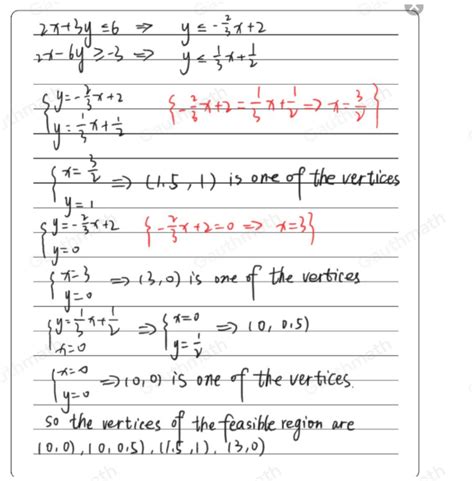 2x+3y ≤ 6 ⇒ y ≤ -2/3x+2
2x-6y ≥ -3 ⇒ y ≤ 1/3x+1/2
{y=-2/3x+2
y=1/3x+1/2 {-2/3x+2=1/3x+1/2 ⇒ x=3/2}
{x=3/2
y=1 ⇒ (1.5, 1) is one of the vertices
{y=-2/3x+2
y=0 {-2/3x+2=0 ⇒ x=3}
{x=3
y=0 ⇒ (3,0) is one of the vertices
{y=1/3x+1/2
x=0 ⇒ {x=0
y=1/2 ⇒ (0, 0.5)
{x=0
y=0 ⇒ (0,0) is one of the vertices.
so the vertices of the feasible region are
(0,0), (0,0.5), (1.5,1), (3,0)